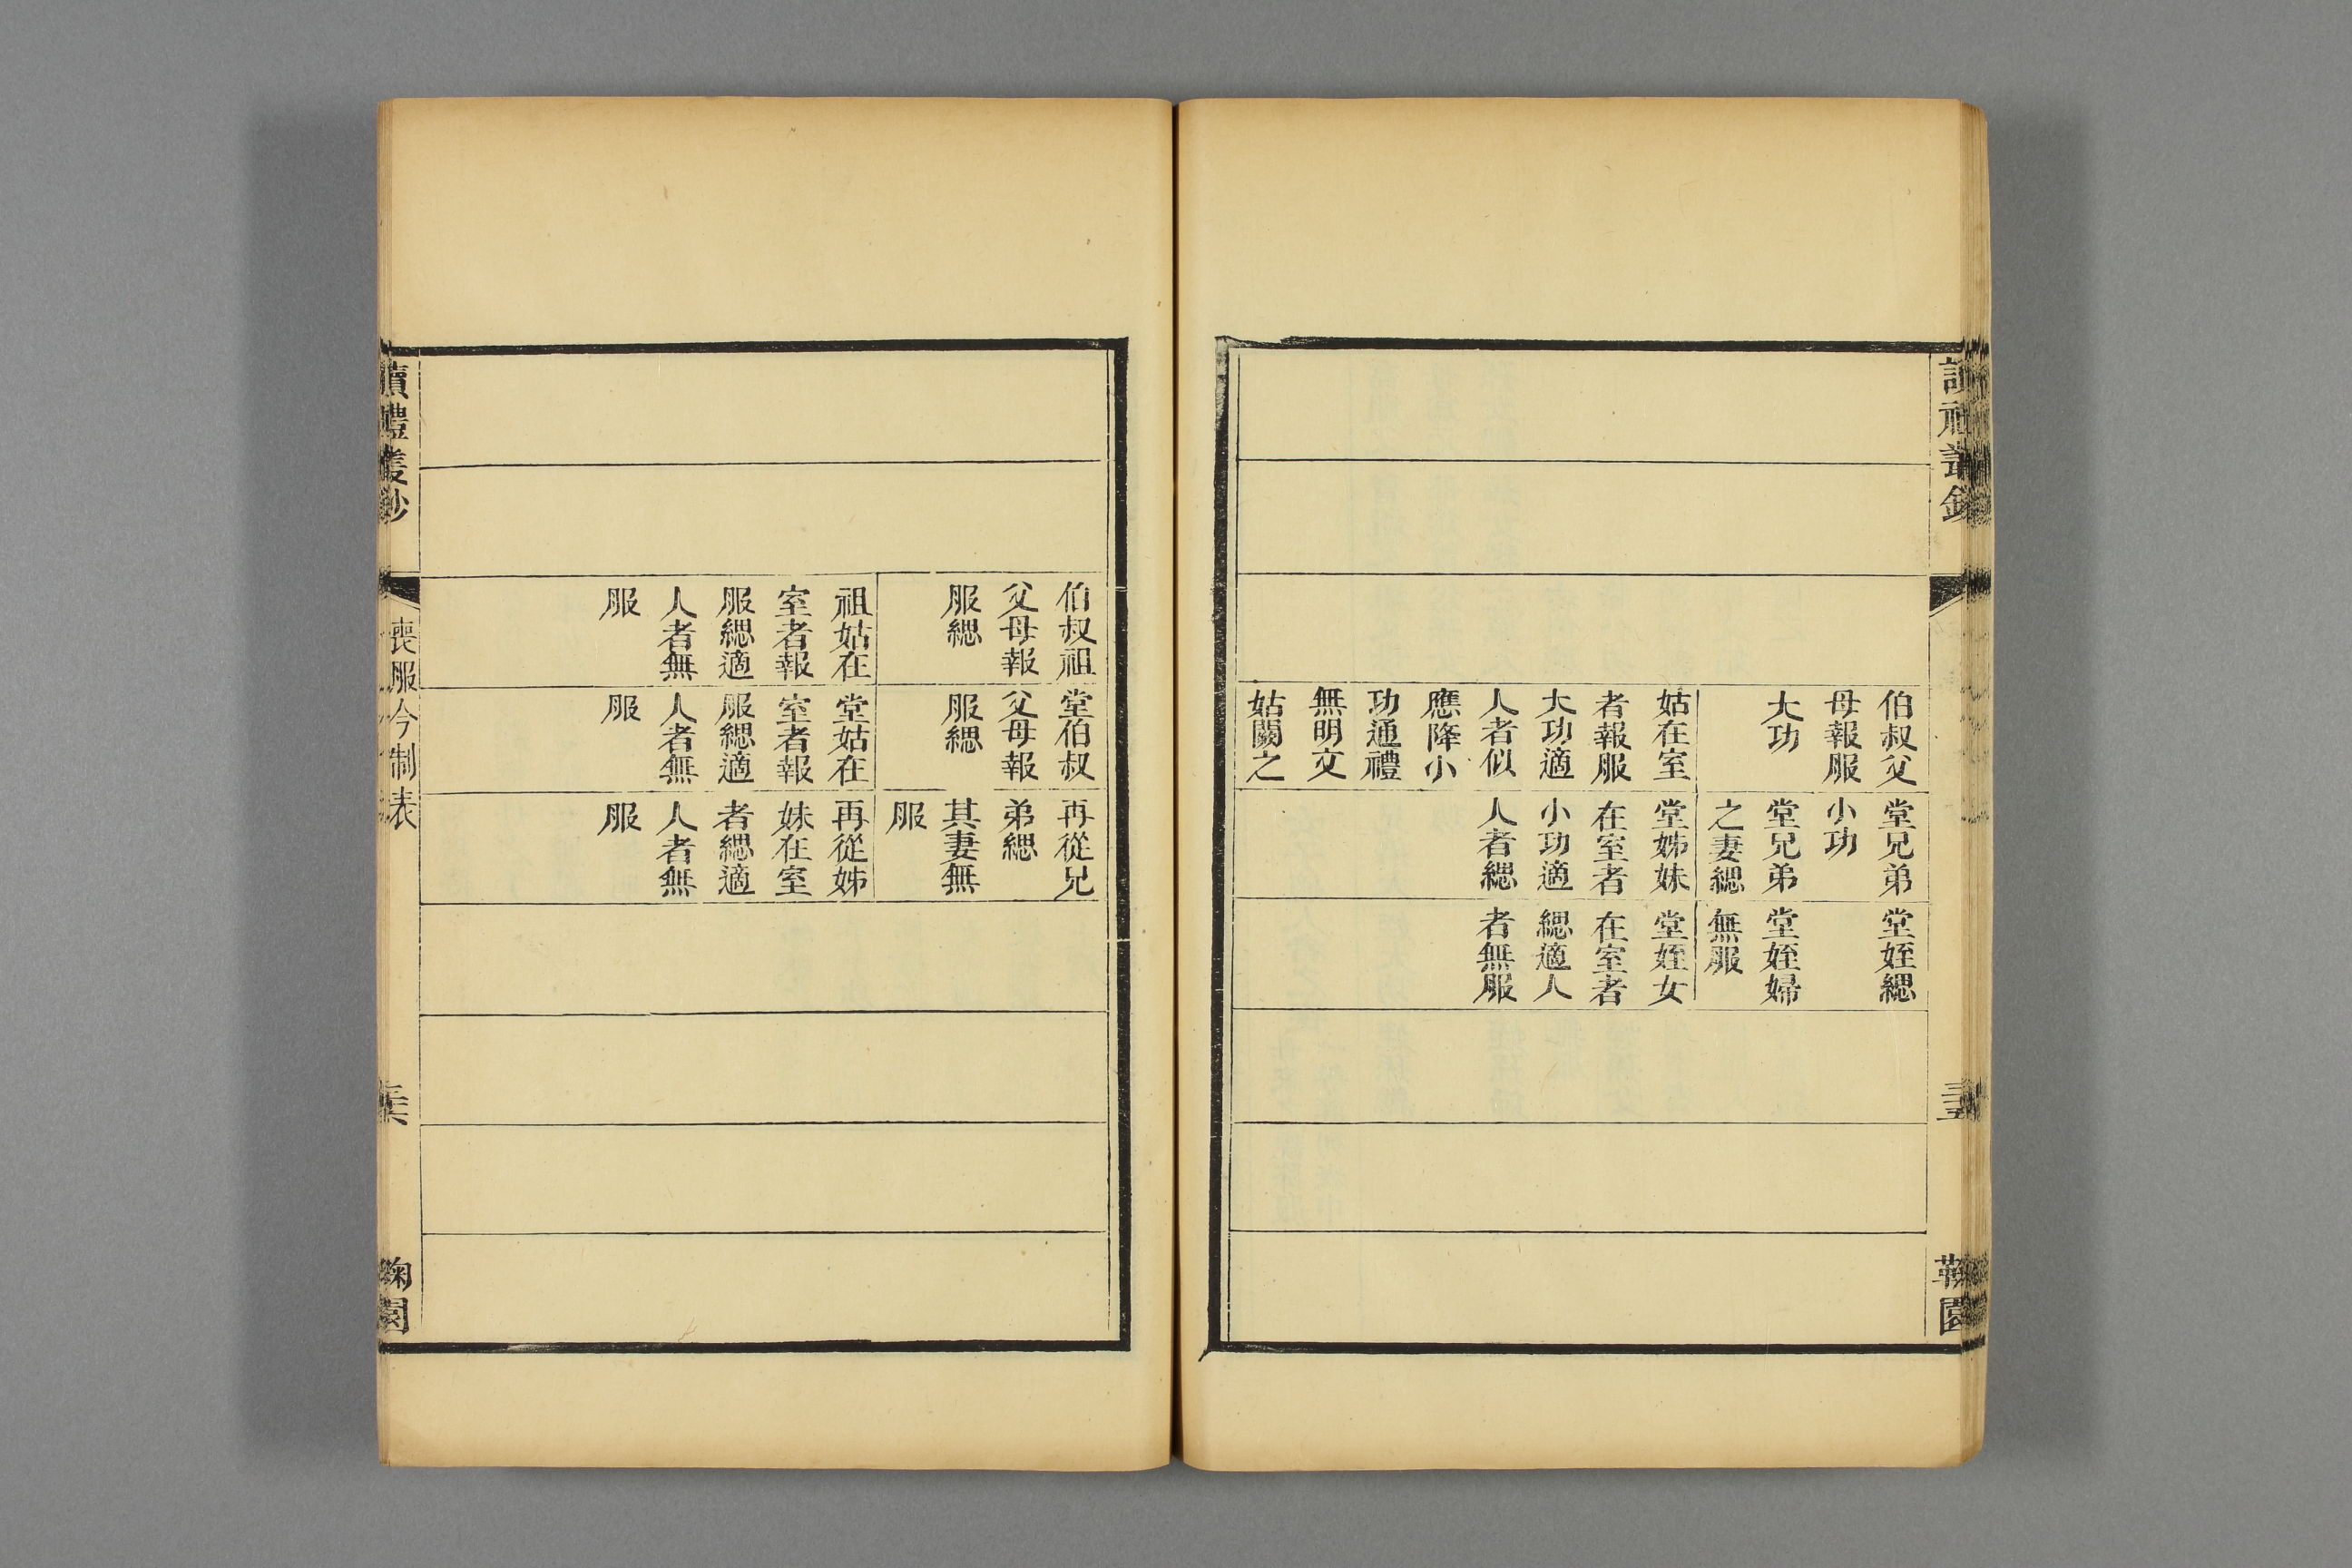 讀禮叢鈔
鞠園
伯叔父
母報服
大功
姑在室
者報服
大功適
人者似
應降小
功通禮
無明文
姑闕之
堂兄弟
小功
堂兄弟
之妻緦
堂姊妹
在室者
小功適
人者緦
堂姪緦
堂姪婦
無服
堂姪女
在室者
緦適人
者無服
伯叔祖
父母報
服緦
祖姑在
室者報
服緦適
人者無
服
堂伯叔
父母報
服緦
堂姑在
室者報
服緦適
人者無
服
再從兄
弟緦
其妻無
服
再從姊
妹在室
者緦適
人者無
服
讀禮叢鈔
喪服今制表
鞠園